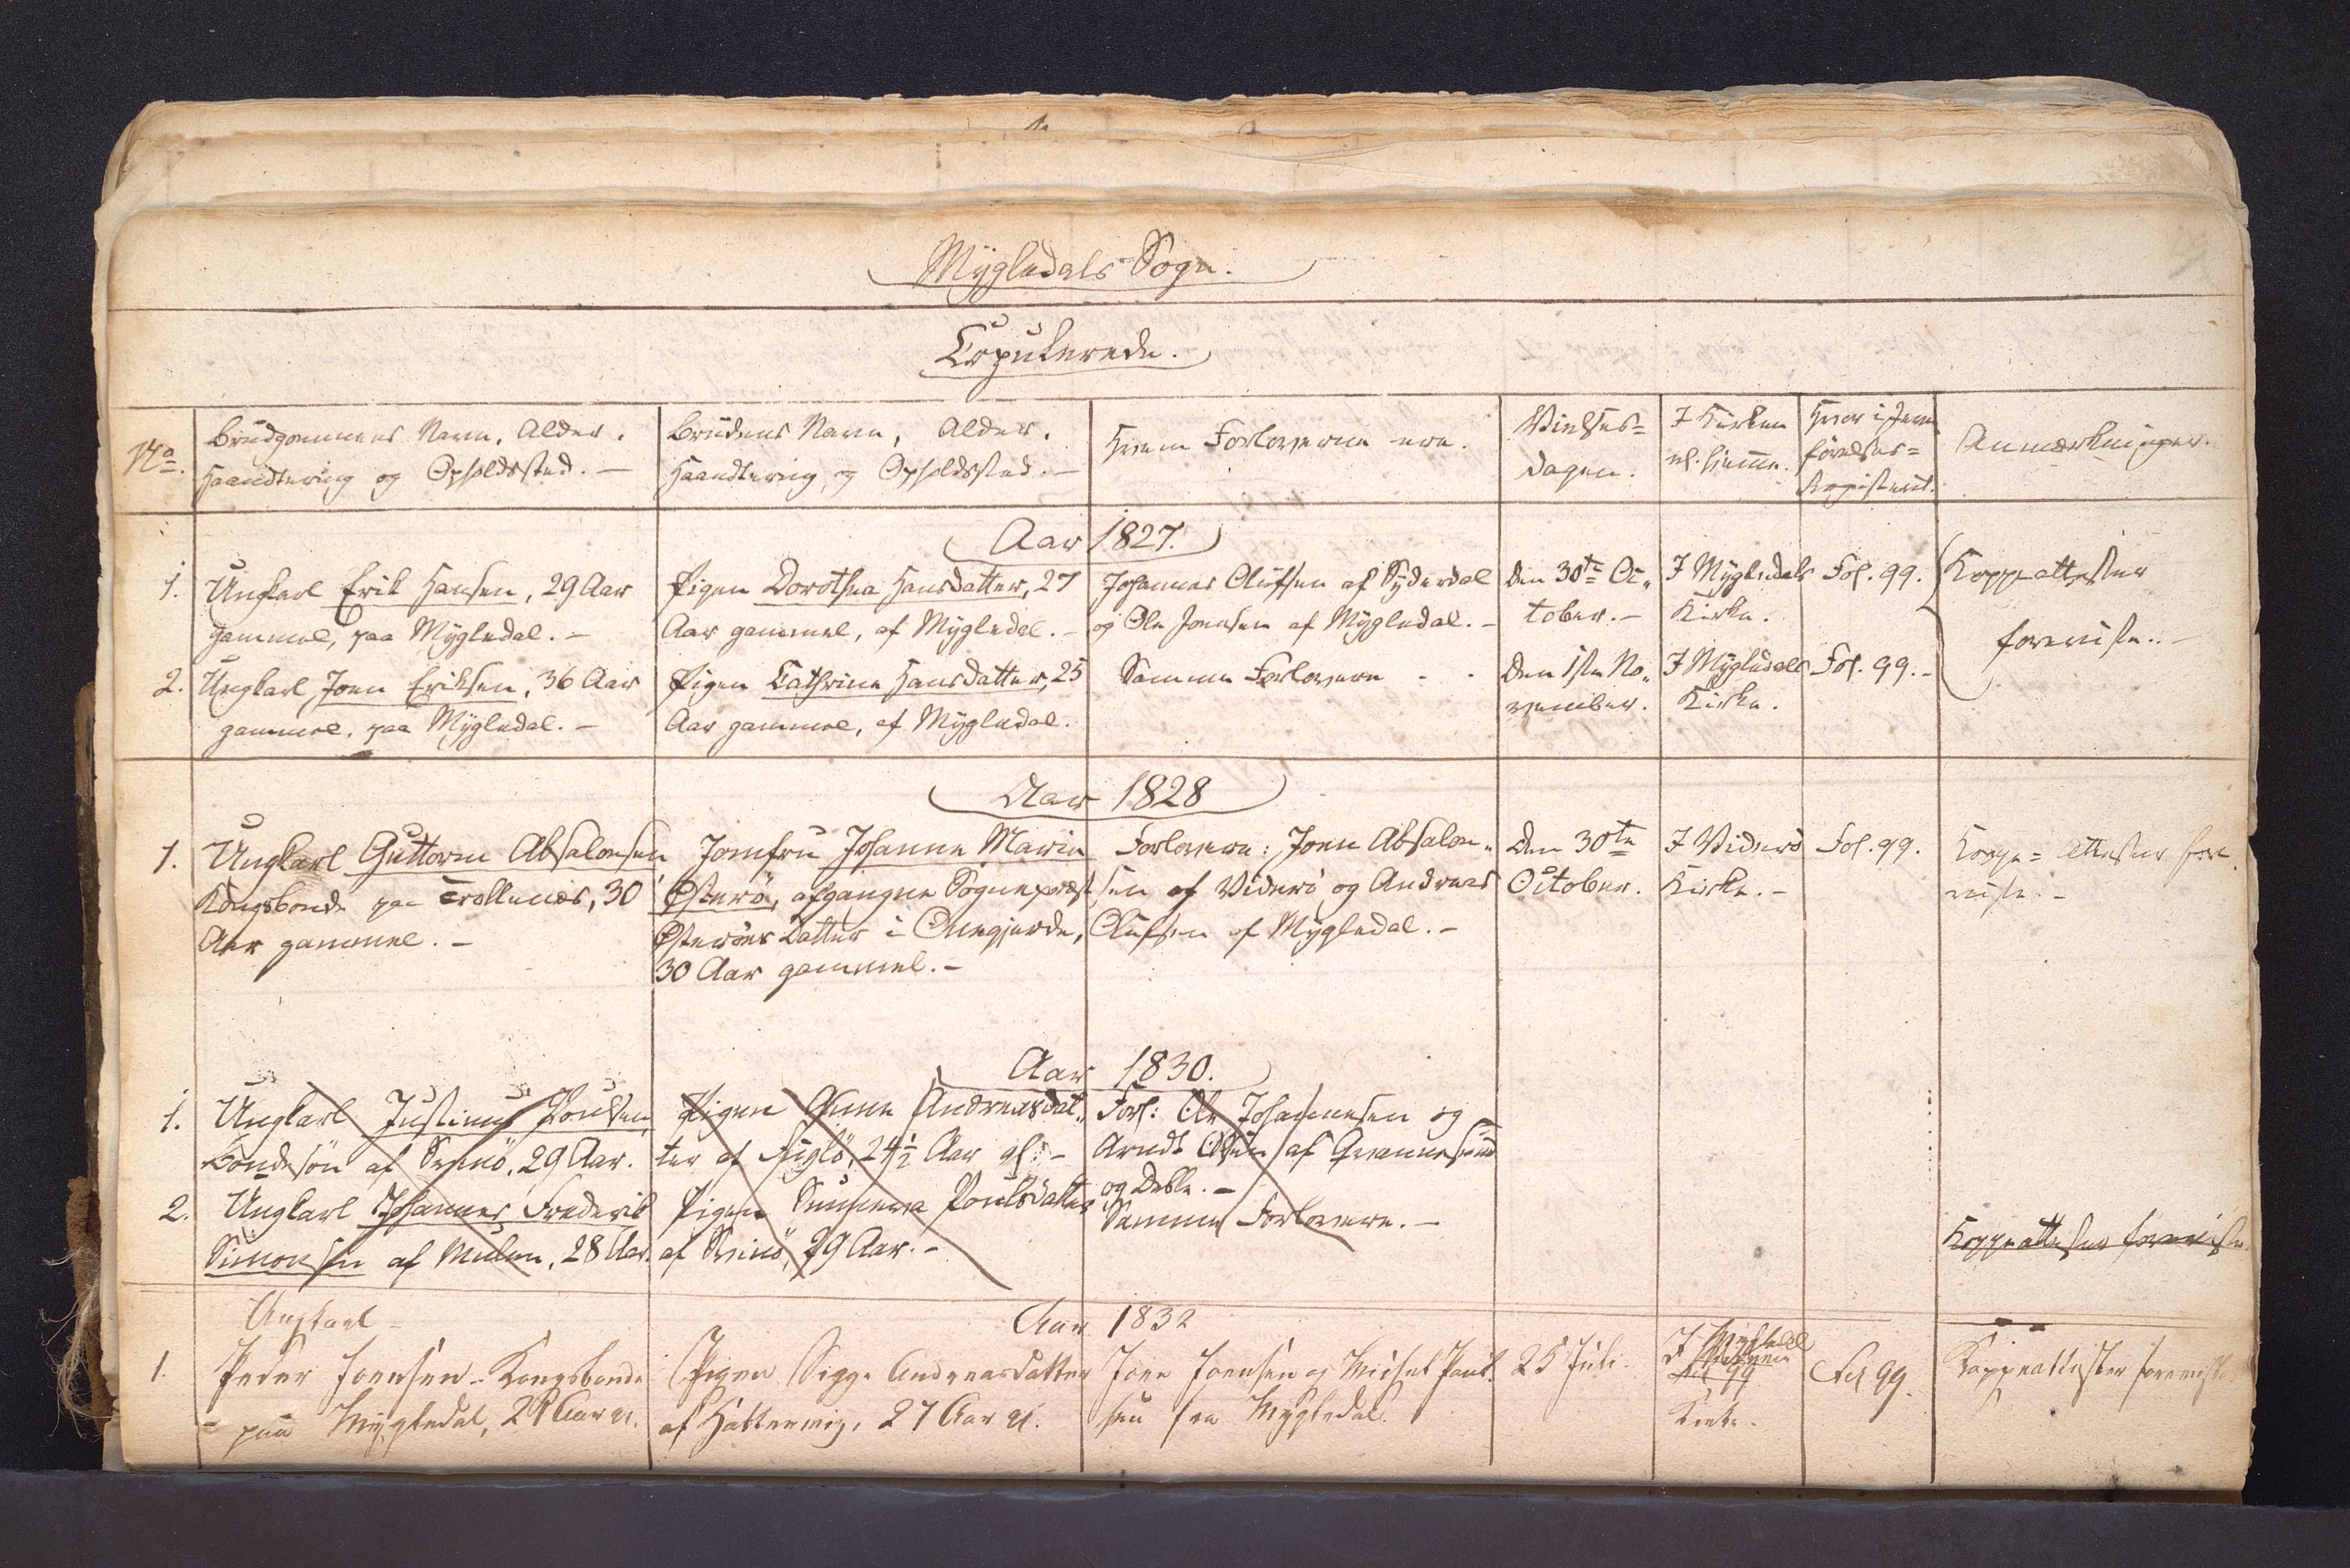 Mygledals Sogn.
Copulerede.
No. Brudgommens Navn, Alder, Haandtering og Opholdssted. —
Brudens Navn, Alder, Haandtering og Opholdssted. —
Hvem Forloverne ere.
Vielses=
dagen.
I Kirken
el. hjemme.
Hvor i Jevn
førelses=
Registeret.
Anmærkninger.
Aar 1827.
1. Ungkarl Erik Hansen, 29 Aar
gammel, paa Mygledal. —
Pigen Dorothea Hansdatter, 27
Aar gammel, af Mygledal. —
Johannes Olufsen af Syderdal
og Ole Joensen af Mygledal. —
Den 30te Oc„
tober. —
I Mygledals
Kirke.
Fol. 99.
Koppeattester
foreviste. —
2. Ungkarl Joen Eriksen, 36 Aar
gammel, paa Mygledal. —
Pigen Cathrine Hansdatter, 25
Aar gammel, af Mygledal.
Samme Forlovere - -
Den 1ste No„
vember.
I Mygledals
Kirke.
Fol. 99. -
Aar 1828
1. Ungkarl Guttorm Absalonsen
Kongsbonde paa Trollenæs, 30
Aar gammel. —
Jomfru Johanne Marie
Østerö, afgangne Sognepræst
Østeröes Datter i Onegjerde,
30 Aar gammel. —
Forlovere: Joen Absalon„
sen af Viderö og Andreas
Olufsen af Mygledal. —
Den 30te
October.
I Viderö
Kirke. —
Fol. 99.
Koppe=Attester fore
viste. —
Aar 1830.
1. Ungkarl Justinus Poulsen
Bondesön af Svinö, 29 Aar.
Pigen Anne Andreasdat„
ter af Fuglö, 24½ Aar gl: —
Forl: Ole Johannesen og
Arndt Olsen af Qvannesund
og Deble. —
2. Ungkarl Johannes Frederik
Simonsen af Mulen, 28 Aar.
Pigen Sunneva Poulsdatter
af Svinö, 29 Aar. —
Samme Forlovere. —
Koppeattester foreviste.
Aar 1832
Ungkarl
1. Peder Joensen - Kongsbonde
paa Mygledal, 28 Aar gl.
Pigen Sigge Andreasdatter
af Hattervig, 27 Aar gl.
Joen Joensen og Michel Poul
sen fra Mygledal.
25 Juli.
I Mygledal
Fol 99
Kirke.
Fol 99.
Koppeattester foreviste